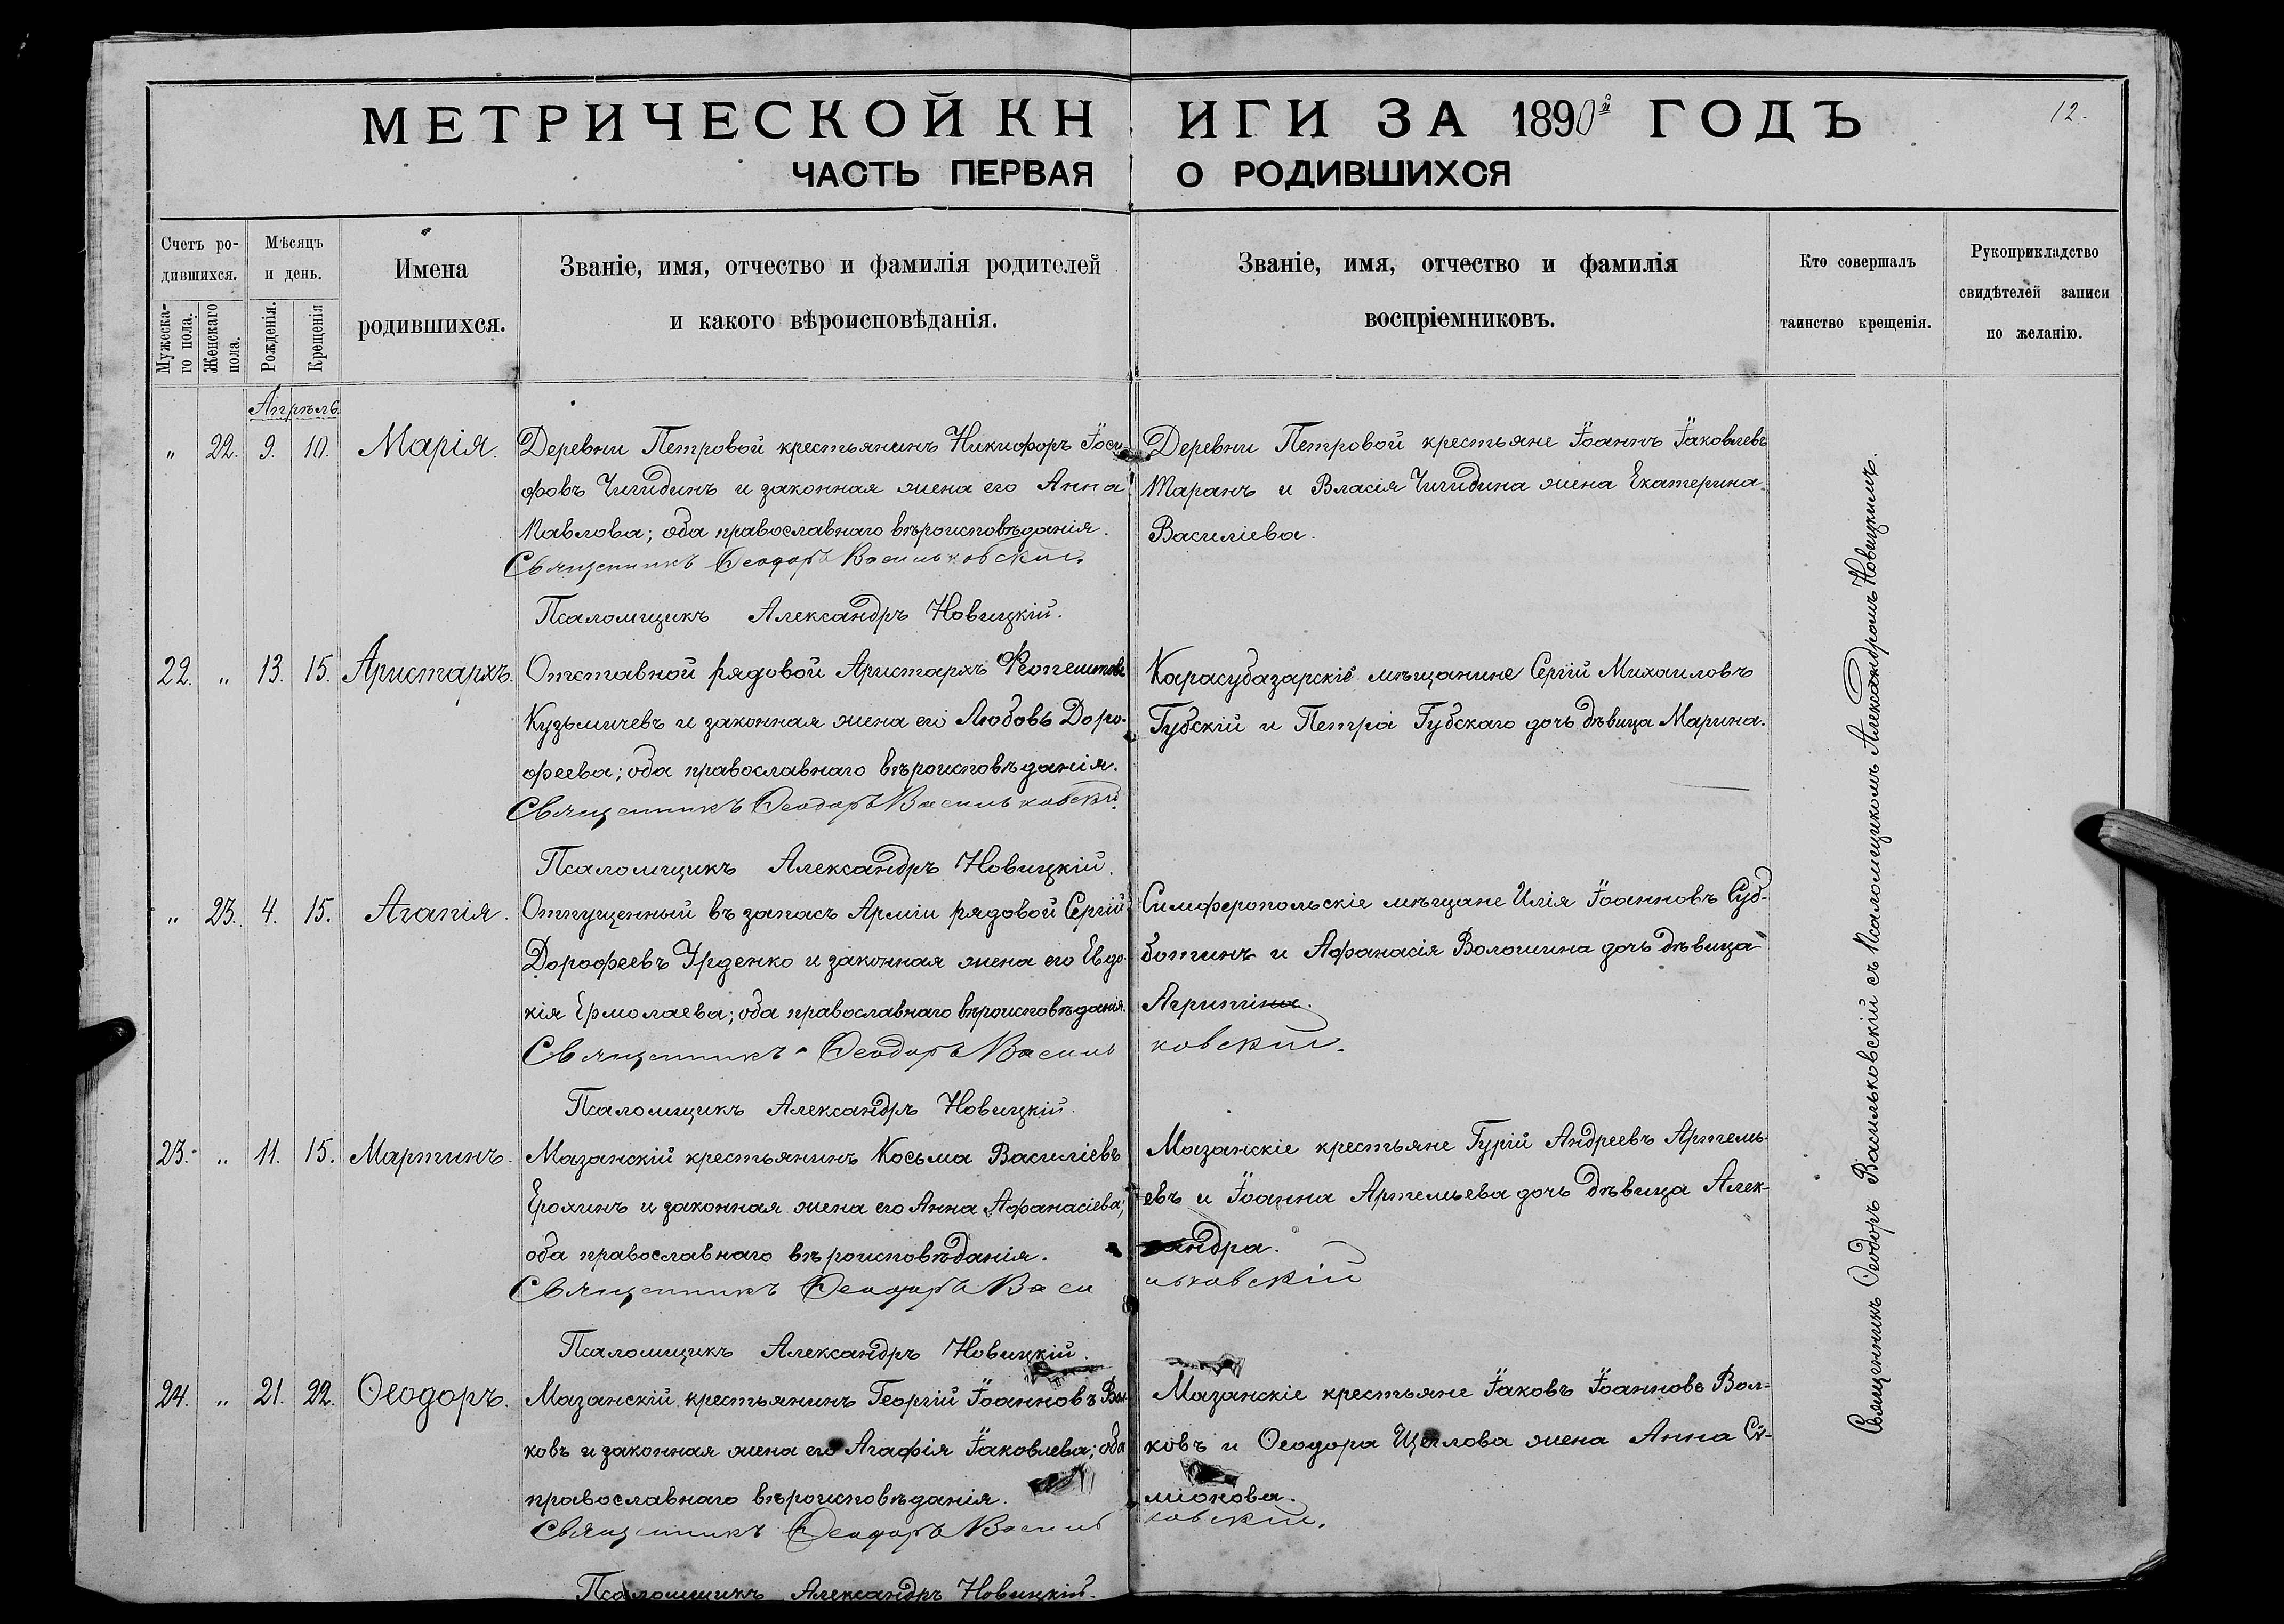 МЕТРИЧЕСКОЙ КНИГИ ЗА 1890й ГОДЪ
12.
ЧАСТЬ ПЕРВАЯ О РОДИВШИХСЯ
Счетъ ро-
дившихся.
Мужеска-
го пола.
Женскаго
пола.
Мѣсяцъ
и день.
Рожденія.
Крещенія
Имена
родившихся.
Званіе, имя, отчество и фамилія родителей
и какого вѣроисповѣданія.
Званіе, имя, отчество и фамилія
воспріемниковъ.
Кто совершалъ
таинство крещенія.
Рукоприкладство
свидѣтелей записи
по желанію.
Апрѣль.
" 22. 9. 10. Марія.
Деревни Петровой крестьянинъ Никифоръ Іоси-
фовъ Чигидинъ и законная жена его Анна
Павлова; оба православнаго вѣроисповѣданія.
Священникъ Ѳеодоръ Васильковскій.
Псаломщикъ Александръ Новицкій.
Деревни Петровой крестьяне Іоаннъ Іаковлевъ
Таранъ и Власія Чигидина жена Екатерина
Василіева.
22. " 13. 15. Аристархъ.
Отставной рядовой Аристархъ
Кузьмичевъ и законная жена его Любовь Доро-
феева; оба православнаго вѣроисповѣданія.
Священникъ Ѳеодоръ Васильковскій
Псаломщикъ Александръ Новицкій.
Карасубазарскіе мѣщанине Сергій Михаиловъ
Губскій и Петра Губскаго дочь дѣвица Марина.
" 23. 4. 15. Агапія.
Отпущенный въ запасъ Арміи рядовой Сергій
Дорофеевъ Урденко и законная жена его Евдо-
кія Ермолаева; оба православнаго вѣроисповѣданія.
Священникъ Ѳеодоръ Васильковскій.
Псаломщикъ Александръ Новицкій.
Симферопольскіе мѣщане Илія Іоанновъ Суб-
ботинъ и Афанасія Волошина дочь дѣвица
23. " 11. 15. Мартинъ.
Мазанскій крестьянинъ Косьма Василіевъ
Ерохинъ и законная жена его Анна Афанасіева;
оба православнаго вѣроисповѣданія.
Священникъ Ѳеодоръ Васильковскій
Псаломщикъ Александръ Новицкій.
Мазанскіе крестьяне Гурій Андреевъ Артемь-
евъ и Іоанна Артемьева дочь дѣвица Алек-
сандра.
24. " 21. 22. Ѳеодоръ.
Мазанскій крестьянинъ Георгій Іоанновъ Вол-
ковъ и законная жена его Агафія Іаковлева; оба
православнаго вѣроисповѣданія.
Священникъ Ѳеодоръ Васильковскій.
Псаломщикъ Александръ Новицкій.
Мазанскіе крестьяне Іаковъ Іоанновъ Вол-
ковъ и Ѳеодора Щеглова жена Анна Си-
міонова.
Священникъ Ѳеодоръ Васильковскій съ Псаломщикомъ Александромъ Новицкимъ.